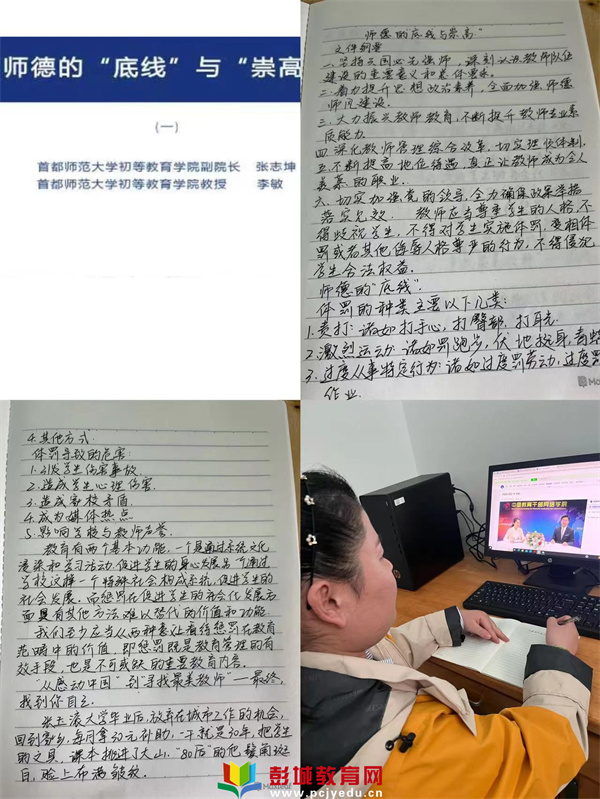 师德的“底线”与“崇高
（一）
首都师范大学初等教育学院副院长 张志坤
首都师范大学初等教育学院教授 李敏
师德的“底线与崇高”
文件纲要
一.坚持兴国必先强师，深刻认识教师队伍
建设的重要意义和总体要求。
二.着力提升思想政治素养，全面加强师德
师风建设。
三.大力振兴教师教育,不断提升教师专业素
质能力.
四.深化教师管理综合改革,切实理顺体制.
五.不断提高地位待遇,真正让教师成为令人
羡慕的职业.
六、切实加强党的领导,全力确保政策举措
落实见效. 教师应当尊重学生的人格,不
得歧视学生,不得对学生实施体罚,变相体
罚或者其他侮辱人格尊严的行为,不得侵犯
学生合法权益.
师德的“底线”.
体罚的种类主要以下几类:
1.责打:诸如打手心,打臀部,打耳光
2.激烈运动:诸如罚跑步,伏地挺身,青蛙
3.过度从事特定行为:诸如过度罚劳动,过度罚
作业.
4.其他方式
体罚导致的危害:
1.引发学生伤害事故.
2.造成学生心理伤害.
3.造成家校矛盾.
4.成为媒体热点
5.影响学校与教师声誉.
教育有两个基本功能,一个是通过系统文化
浸染和学习活动促进学生的身心发展;另一个通过
学校这样一个特殊社会构成系统,促进学生的
社会发展,而惩罚在促进学生的社会化发展方
面具有其他方法难以替代的价值和功能.
我们至少应当从两种意义看待惩罚在教育
范畴中的价值,即惩罚既是教育管理的有
效手段,也是不可或缺的重要教育内容.
“从感动中国”到寻找最美教师”—最终,
找到你自己.
张玉滚大学毕业后,放弃在城市工作的机会,
回到家乡,每月拿30元补助,一干就是20年,把学生
的文具、课本挑进了大山.“80后”的他鬓角斑
白,脸上布满皱纹.
中国教育干部网络学院
彭城教育网
www.pcjyedu.cn